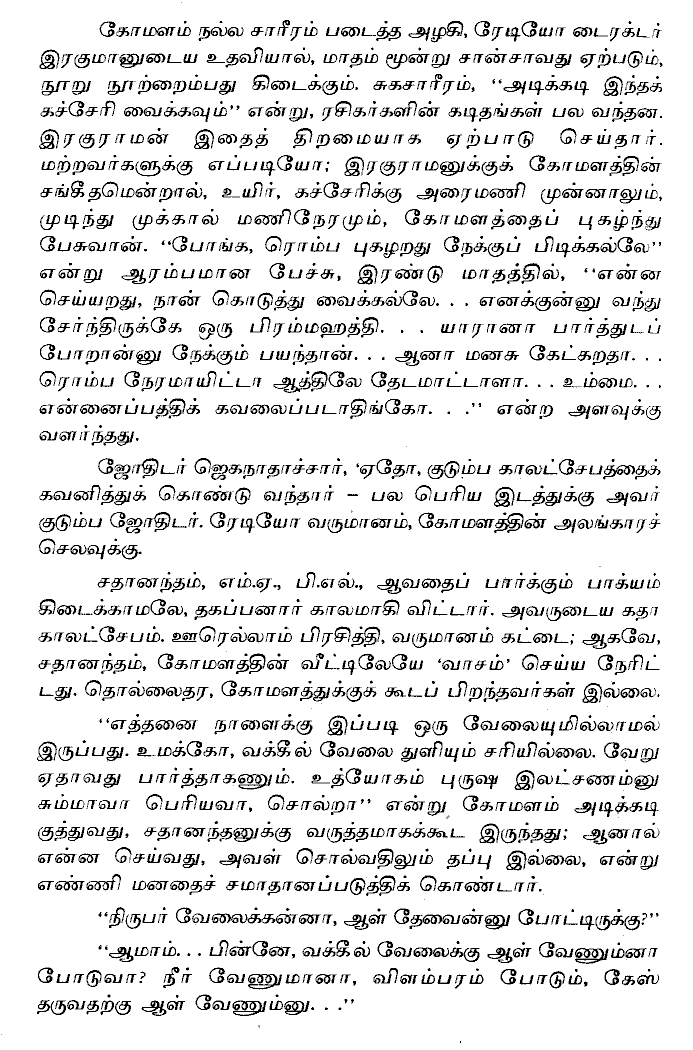 கோமளம் நல்ல சாரீரம் படைத்த அழகி, ரேடியோ டைரக்டர்
இரகுமானுடைய உதவியால், மாதம் மூன்று சான்சாவது ஏற்படும்,
நூறு நூற்றைம்பது கிடைக்கும். சுகசாரீரம், “அடிக்கடி இந்தக்
கச்சேரி வைக்கவும்” என்று, ரசிகர்களின் கடிதங்கள் பல வந்தன.
இரகுராமன் இதைத் திறமையாக ஏற்பாடு செய்தார்.
மற்றவர்களுக்கு எப்படியோ; இரகுராமனுக்குக் கோமளத்தின்
சங்கீதமென்றால், உயிர், கச்சேரிக்கு அரைமணி முன்னாலும்,
முடிந்து முக்கால் மணிநேரமும், கோமளத்தைப் புகழ்ந்து
பேசுவான். “போங்க, ரொம்ப புகழறது நேக்குப் பிடிக்கல்லே”
என்று ஆரம்பமான பேச்சு, இரண்டு மாதத்தில், “என்ன
செய்யறது, நான் கொடுத்து வைக்கல்லே. . . எனக்குன்னு வந்து
சேர்ந்திருக்கே ஒரு பிரம்மஹத்தி. . . யாரானா பார்த்துடப்
போறான்னு நேக்கும் பயந்தான். . . ஆனா மனசு கேட்கறதா. . .
ரொம்ப நேரமாயிட்டா ஆத்திலே தேடமாட்டாளா. . . உம்மை. . .
என்னைப்பத்திக் கவலைப்படாதிங்கோ. . .” என்ற அளவுக்கு
வளர்ந்தது.
ஜோதிடர் ஜெகநாதாச்சார், ‘ஏதோ, குடும்ப காலட்சேபத்தைக்
கவனித்துக் கொண்டு வந்தார் – பல பெரிய இடத்துக்கு அவர்
குடும்ப ஜோதிடர். ரேடியோ வருமானம், கோமளத்தின் அலங்காரச்
செலவுக்கு.
சதானந்தம், எம்.ஏ., பி.எல்., ஆவதைப் பார்க்கும் பாக்யம்
கிடைக்காமலே, தகப்பனார் காலமாகி விட்டார். அவருடைய கதா
காலட்சேபம். ஊரெல்லாம் பிரசித்தி, வருமானம் கட்டை; ஆகவே,
சதானந்தம், கோமளத்தின் வீட்டிலேயே ‘வாசம்’ செய்ய நேரிட்
டது. தொல்லைதர, கோமளத்துக்குக் கூடப் பிறந்தவர்கள் இல்லை.
“எத்தனை நாளைக்கு இப்படி ஒரு வேலையுமில்லாமல்
இருப்பது. உமக்கோ, வக்கீல் வேலை துளியும் சரியில்லை. வேறு
ஏதாவது பார்த்தாகணும். உத்யோகம் புருஷ இலட்சணம்னு
சும்மாவா பெரியவா, சொல்றா” என்று கோமளம் அடிக்கடி
குத்துவது, சதானந்தனுக்கு வருத்தமாகக்கூட இருந்தது; ஆனால்
என்ன செய்வது, அவள் சொல்வதிலும் தப்பு இல்லை, என்று
எண்ணி மனதைச் சமாதானப்படுத்திக் கொண்டார்.
“நிருபர் வேலைக்கன்னா, ஆள் தேவைன்னு போட்டிருக்கு?”
“ஆமாம். . . பின்னே, வக்கீல் வேலைக்கு ஆள் வேணும்னா
போடுவா? நீர் வேணுமானா, விளம்பரம் போடும், கேஸ்
தருவதற்கு ஆள் வேணும்னு. . .”